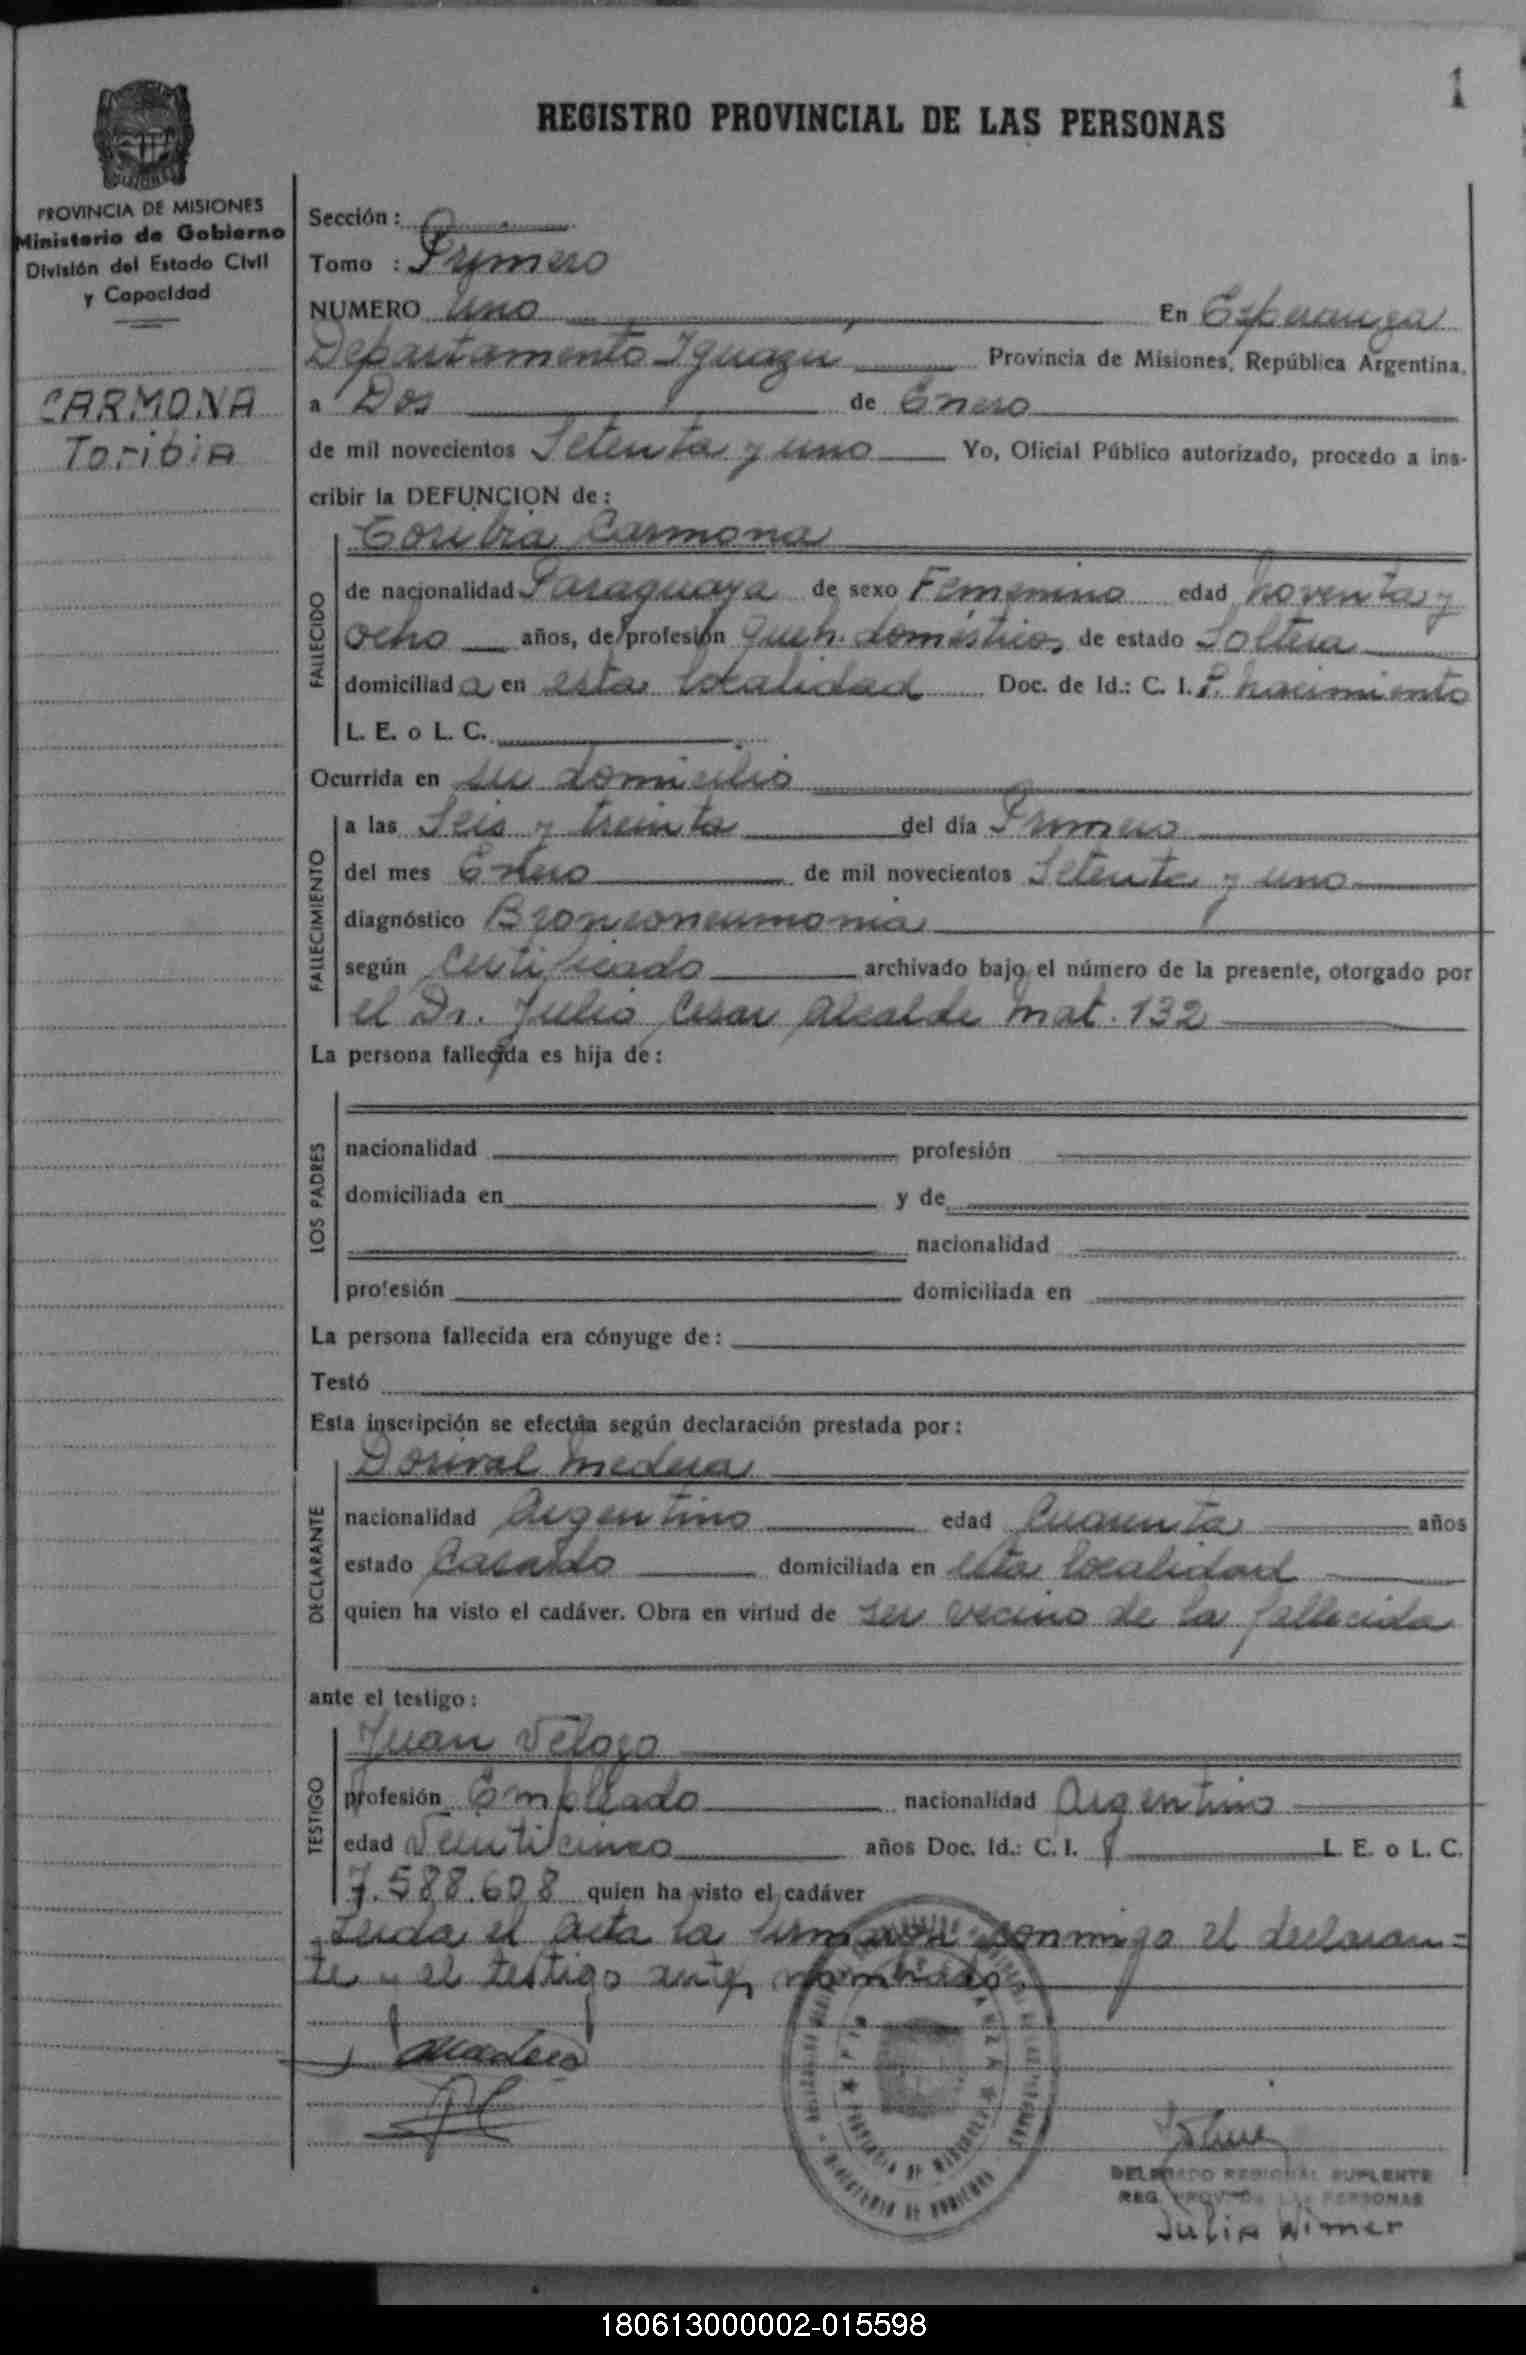 1
REGISTRO PROVINCIAL DE LAS PERSONAS
PROVINCIA DE MISIONES
Ministerio de Gobierno
División del Estado Civil
y Capacidad
CARMONA
Toribia
Sección:
Tomo : Primero
NUMERO uno En Esperanza
Departamento Iguazu Provincia de Misiones, República Argentina,
a Dos de Enero
de mil novecientos Setenta y uno Yo, Oficial Público autorizado, procedo a ins-
cribir la DEFUNCION de:
Toribia Carmona
FALLECIDO
de nacionalidad Paraguaya de sexo Femenino edad noventa y
ocho años, de profesión Queh. domésticos de estado Soltera
domiciliada en esta localidad Doc. de Id.: C. I. P. nacimiento
L. E. o L. C.
Ocurrida en su domicilio
FALLECIMIENTO
a las Seis y treinta del día Primero
del mes Enero de mil novecientos Setenta y uno
diagnóstico Bronconeumonia
según Certificado archivado bajo el número de la presente, otorgado por
el Dr. Julio Cesar Alcalde Mat. 132
La persona fallecida es hija de:
LOS PADRES
nacionalidad profesión
domiciliada en y de
nacionalidad
profesión domiciliada en
La persona fallecida era cónyuge de:
Testó
Esta inscripción se efectúa según declaración prestada por:
Dorival Medera
DECLARANTE
nacionalidad Argentino edad Cuarenta años
estado Casado domiciliada en esta localidad
quien ha visto el cadáver. Obra en virtud de ser vecino de la fallecida
ante el testigo:
Juan Velozo
TESTIGO
profesión Empleado nacionalidad Argentino
edad Veinticinco años Doc. Id.: C. I. L. E. o L. C.
7.588.608 quien ha visto el cadáver
Leida el acta la firman conmigo el declaran=
te y el testigo antes nombrado.
DELEGADO REGIONAL SUPLENTE
REG. PROV. DE LAS PERSONAS
Julia Wimer
180613000002-015598